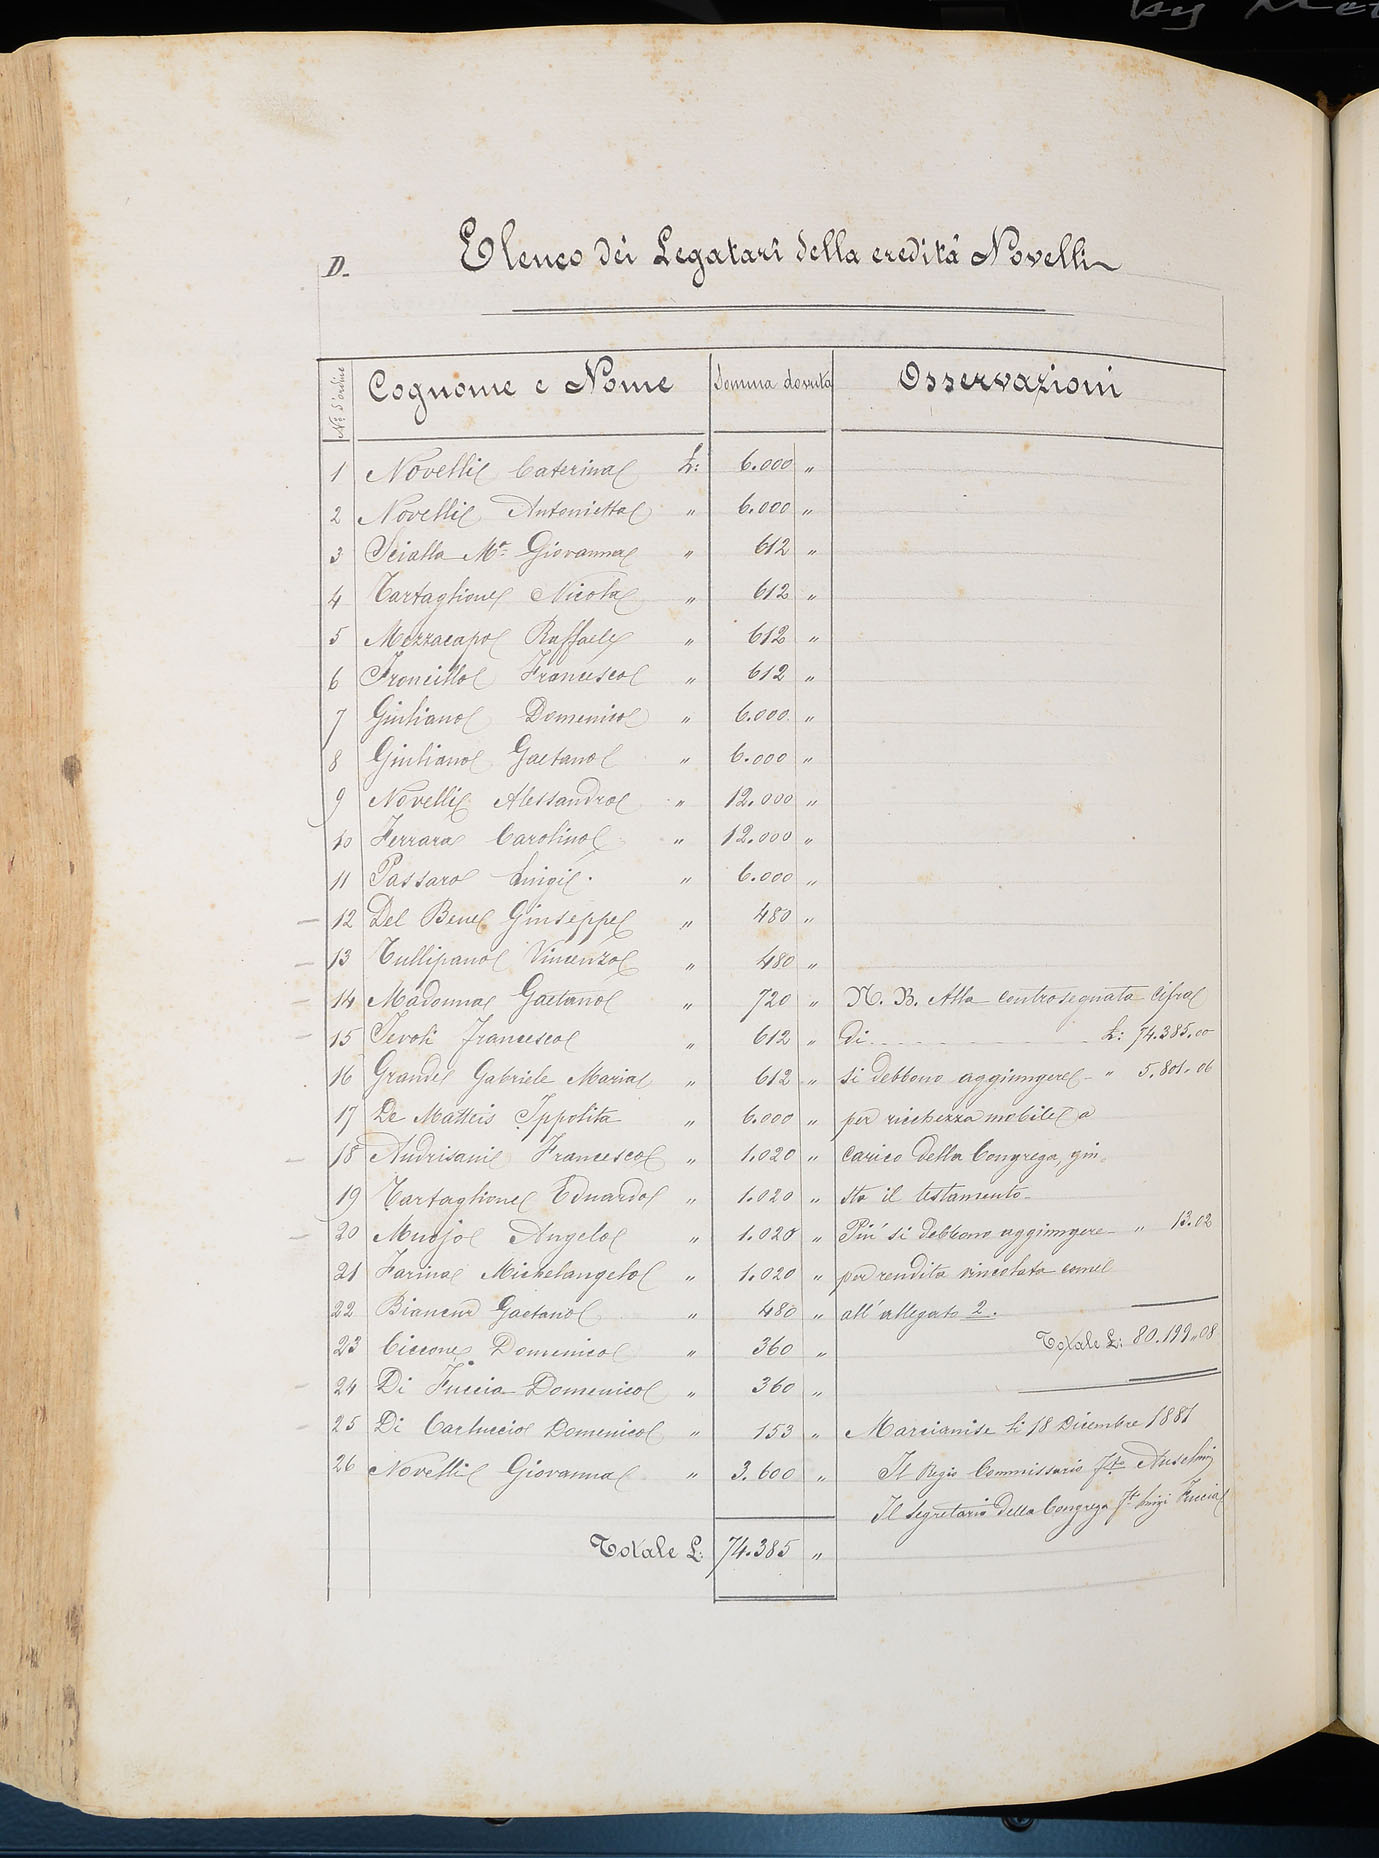 D.
Elenco dei Legatarî della eredità Novelli
N.º d'ordine Cognome e Nome Somma dovuta Osservazioni
1 Novelli Caterina L: 6.000 „
2 Novelli Antonietta „ 6.000 „
3 Scialla Mª Giovanna „ 612 „
4 Tartaglione Nicola „ 612 „
5 Mezzacapo Raffaele „ 612 „
6 Froncillo Francesco „ 612 „
7 Giuliano Domenico „ 6.000 „
8 Giuliano Gaetano „ 6.000 „
9 Novelli Alessandro „ 12.000 „
10 Ferrara Carolina „ 12.000 „
11 Passaro Luigi. „ 6.000 „
12 Del Bene Giuseppe „ 480 „
13 Tullipano Vincenzo „ 480 „
14 Madonna Gaetano „ 720 „ N. B. Alla controsegnata cifra
15 Tevoli Francesco „ 612 „ di L: 74.385,00
16 Grande Gabriele Maria „ 612 „ si debbono aggiungere „ 5.801.06
17 De Matteis Ippolita „ 6.000 „ per ricchezza mobile a
18 Andrisani Francesco „ 1.020 „ carico della Congrega, giu=
19 Tartaglione Eduardo „ 1.020 „ sto il testamento-
20 Muojo Angelo „ 1.020 „ Più si debbono aggiungere „ 13.02
21 Farina Michelangelo „ 1.020 „ per rendita vincolata come
22 Gaetano „ 480 „ all'allegato 2.
23 Ciccone Domenico „ 360 „ Totale L: 80.199,,08
24 Di Fuccia Domenico „ 360 „
25 Di Carluccio Domenico „ 153 „ Marcianise li 18 Dicembre 1881
26 Novelli Giovanna „ 3.600 „ Il Regio Commissario fto Anselmi
Il Segretario della Congrega fto Luigi Fuccia
Totale L: 74.385 „